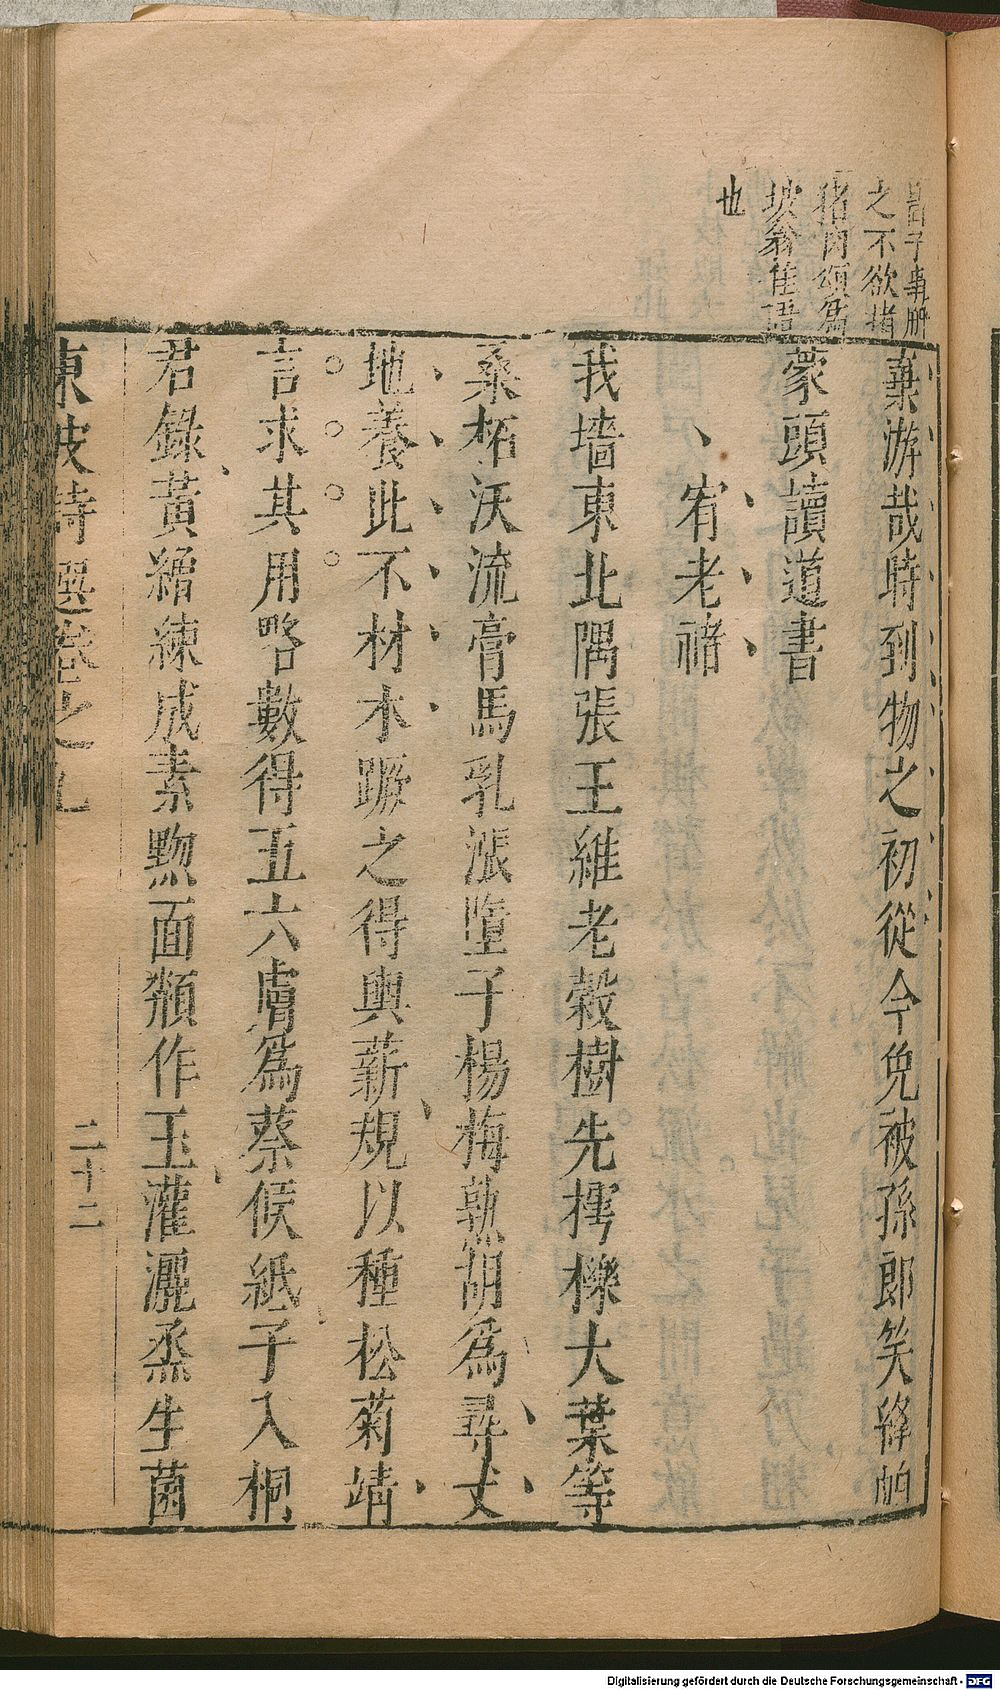 之不欲猪
猪肉頌為
坡翁隹語
也
棄游哉時到物之初從今免被孫郎笑絳帕
蒙頭讀道書
宥老䄍
我墻東北隅張王維老榖樹先樗櫟大葉等
桑柘沃流膏馬乳漲墮子楊梅熟胡為尋丈
地養此不材木蹶之得輿薪規以種松菊靖
言求其用略數得五六膚為蔡候紙子入桐
君錄黃繒練成素黝面頮作玉灌灑烝生菌
東坡詩選卷之九
二十二
Digitalisierung gefördert durch die Deutsche Forschungsgemeinschaft - DFG